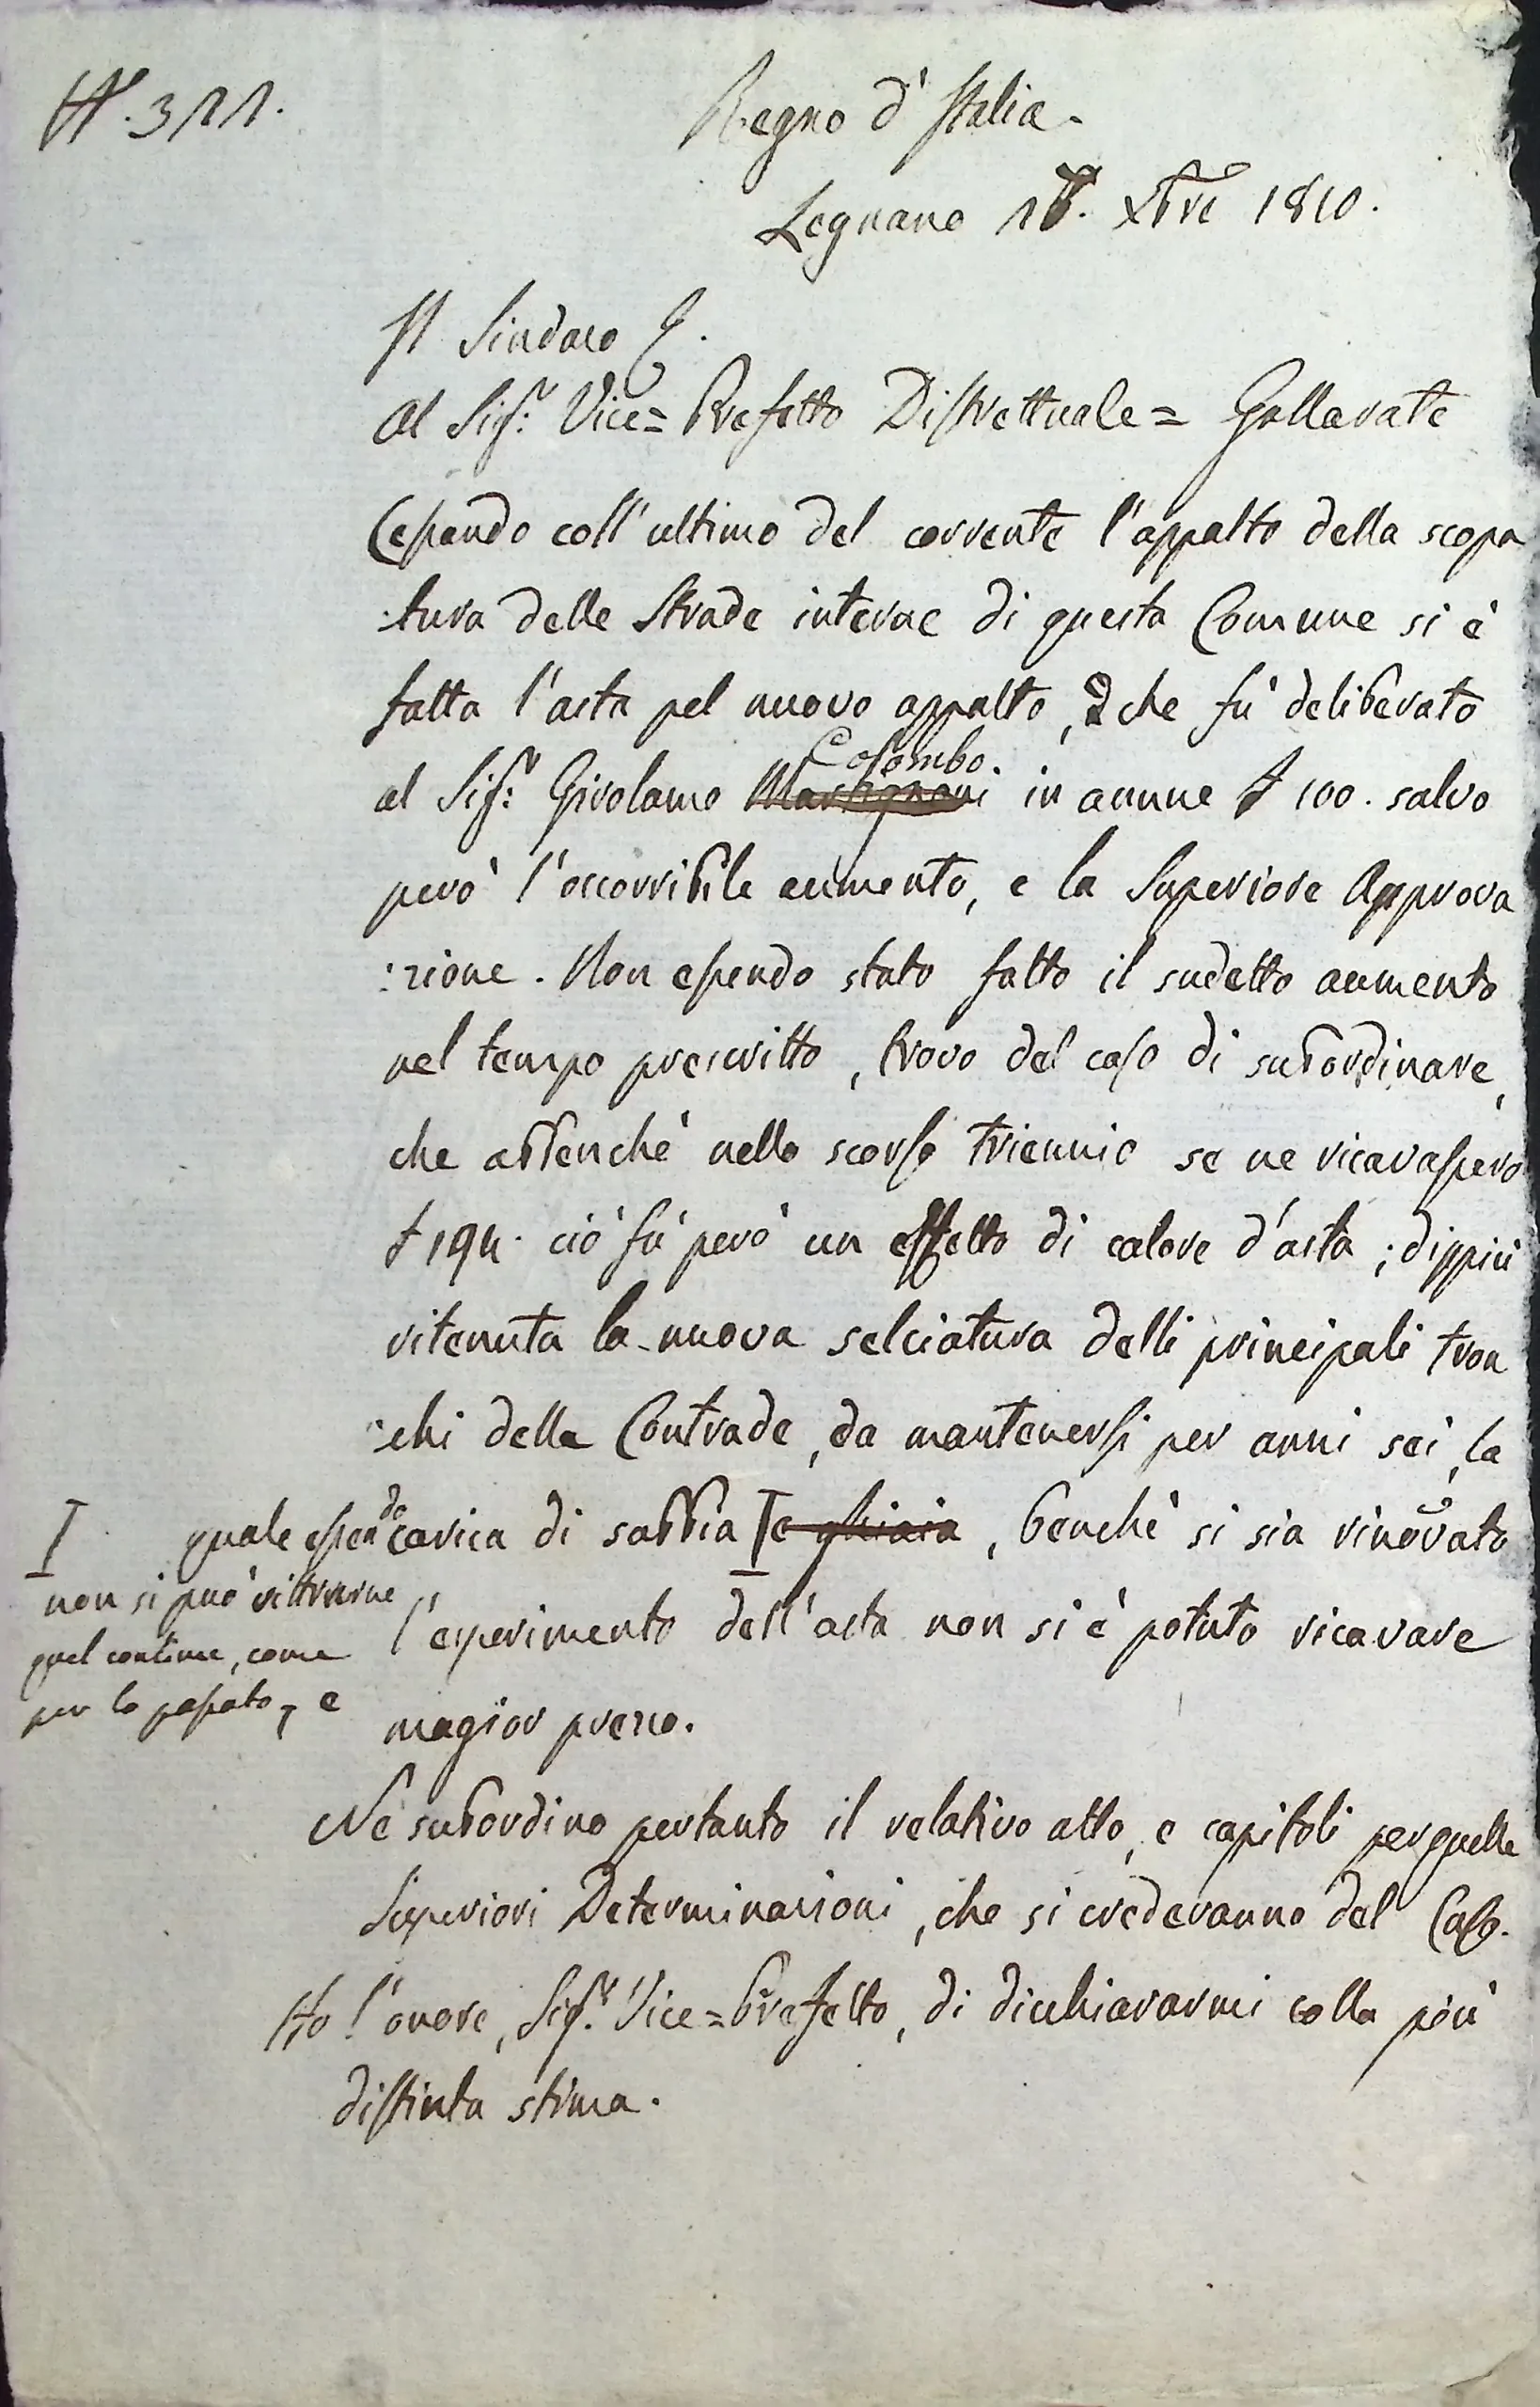 N. 311.
Regno d'Italia.
Legnano 1. Xbre 1810.
Il Sindaco
Al Sigr. Vice= Prefetto Distrettuale= Gallarate
Cessando coll'ultimo del corrente l'appalto della scopa
:tura delle Strade interne di questa Comune si è
fatta l'asta pel nuovo appalto, che fù deliberato
Colombo.
al Sigr. Girolamo Martignoni in annue £ 100. salvo
però l'occorribile aumento, e la Superiore Approva
:zione. Non essendo stato fatto il sudetto aumento
nel tempo prescritto, trovo del caso di subordinare,
che abbenchè nello scorso triennio se ne ricavassero
£ 194. ciò fù però un effetto di calore d'asta; dippiù
ritenuta la nuova selciatura delli principali tron
:chi delle Contrade, da mantenersi per anni sei, la
quale essendo carica di sabbia e ghiaia, benchè si sia rinovato
I non si può ritrarne
quel contine, come
per lo passato, e
l'esperimento dell'asta non si è potuto ricavare
magior prezzo.
Ne subordino pertanto il relativo atto, e capitoli per quelle
Superiori Determinazioni, che si crederanno del Caso.
Ho l'onore, Sigr. Vice=Prefetto, di dichiararmi colla più
distinta stima.